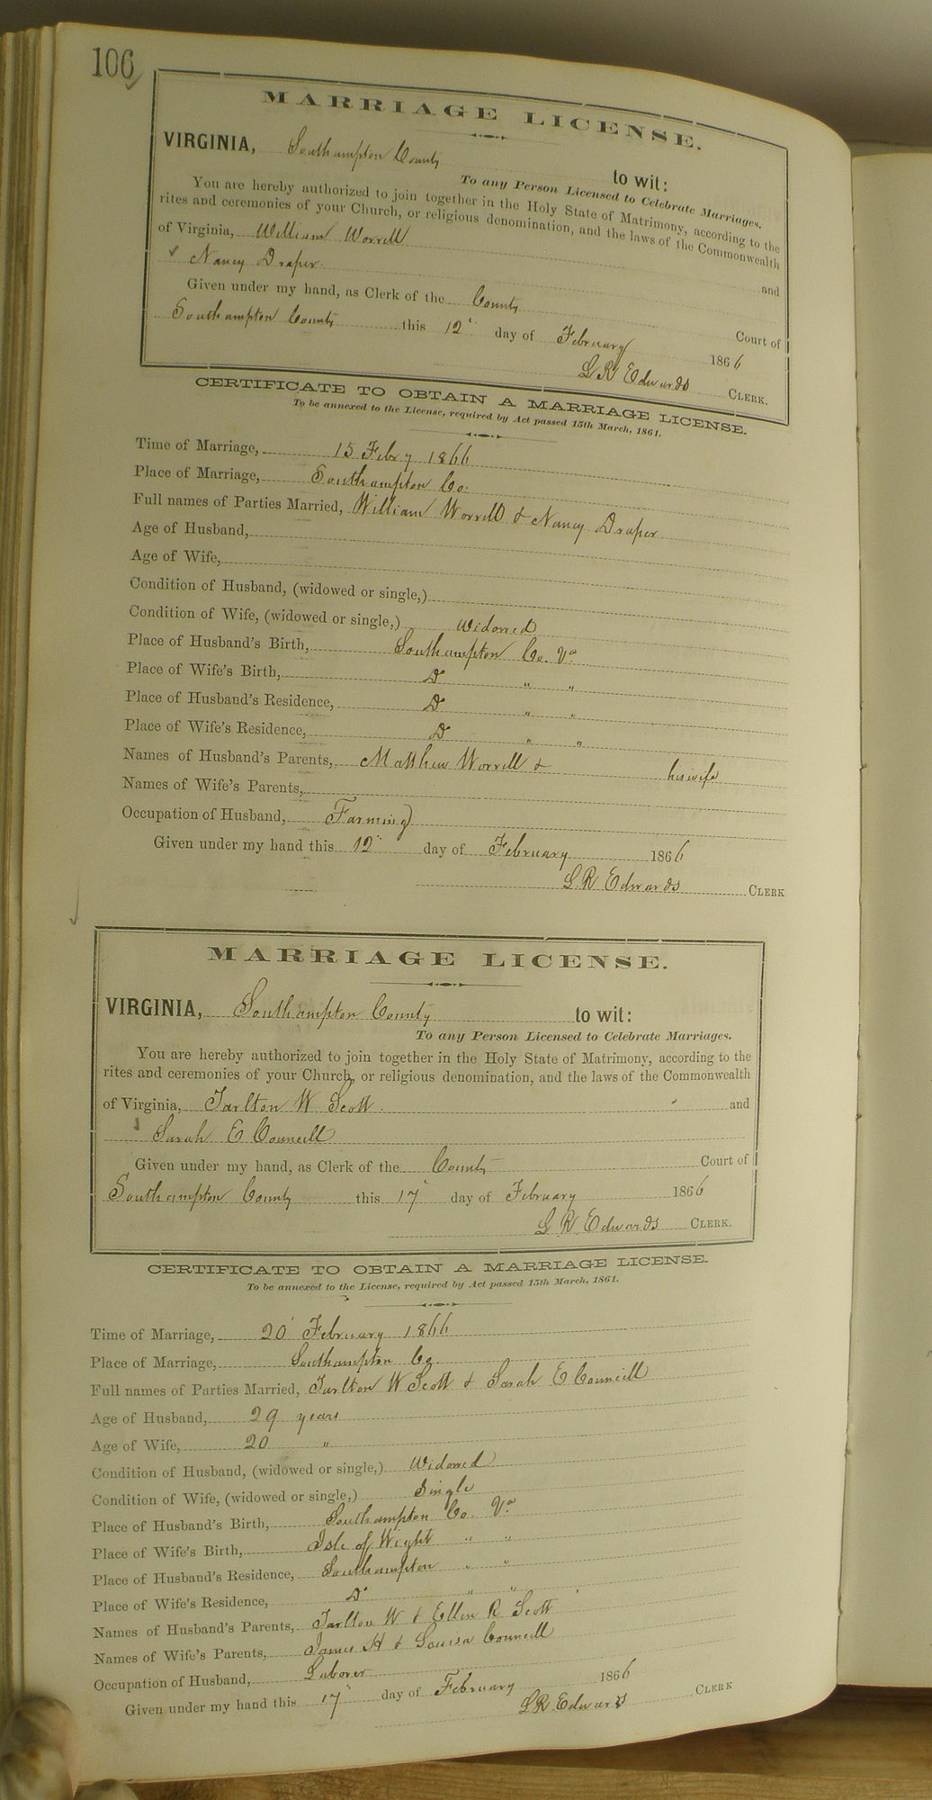 106
MARRIAGE LICENSE.
VIRGINIA, Southampton County to wit:
To any Person Licensed to Celebrate Marriages.
You are hereby authorized to join together in the Holy State of Matrimony, according to the
rites and ceremonies of your Church, or religious denomination, and the laws of the Commonwealth
of Virginia, William Worrell and
Nancy Draper
Given under my hand, as Clerk of the County Court of
Southampton County this 12 day of February 1866
L R Edwards CLERK.
CERTIFICATE TO OBTAIN A MARRIAGE LICENSE.
To be annexed to the License, required by Act passed 15th March, 1861.
Time of Marriage, 15 Febry 1866
Place of Marriage, Southampton Co.
Full names of Parties Married, William Worrell & Nancy Draper
Age of Husband,
Age of Wife,
Condition of Husband, (widowed or single,)
Condition of Wife, (widowed or single,) Widowed
Place of Husband's Birth, Southampton Co. Va
Place of Wife's Birth, Do " "
Place of Husband's Residence, Do " "
Place of Wife's Residence, Do " "
Names of Husband's Parents, Matthew Worrell & his wife
Names of Wife's Parents,
Occupation of Husband, Farming
Given under my hand this 12 day of February 1866
L R Edwards CLERK
MARRIAGE LICENSE.
VIRGINIA, Southampton County to wit:
To any Person Licensed to Celebrate Marriages.
You are hereby authorized to join together in the Holy State of Matrimony, according to the
rites and ceremonies of your Church, or religious denomination, and the laws of the Commonwealth
of Virginia, Tarlton W Scott and
Sarah E Councill
Given under my hand, as Clerk of the County Court of
Southampton County this 17 day of February 1866
L R Edwards CLERK.
CERTIFICATE TO OBTAIN A MARRIAGE LICENSE.
To be annexed to the License, required by Act passed 15th March, 1861.
Time of Marriage, 20 February 1866
Place of Marriage, Southampton Co.
Full names of Parties Married, Tarlton W Scott & Sarah E Councill
Age of Husband, 29 years
Age of Wife, 20 "
Condition of Husband, (widowed or single,) Widowed
Condition of Wife, (widowed or single,) Single
Place of Husband's Birth, Southampton Co. Va
Place of Wife's Birth, Isle of Wight " "
Place of Husband's Residence, Southampton " "
Place of Wife's Residence, Do " "
Names of Husband's Parents, Tarlton W & Ellen R Scott
Names of Wife's Parents, James H & Louisa Councill
Occupation of Husband, Laborer
Given under my hand this 17 day of February 1866
L R Edwards CLERK